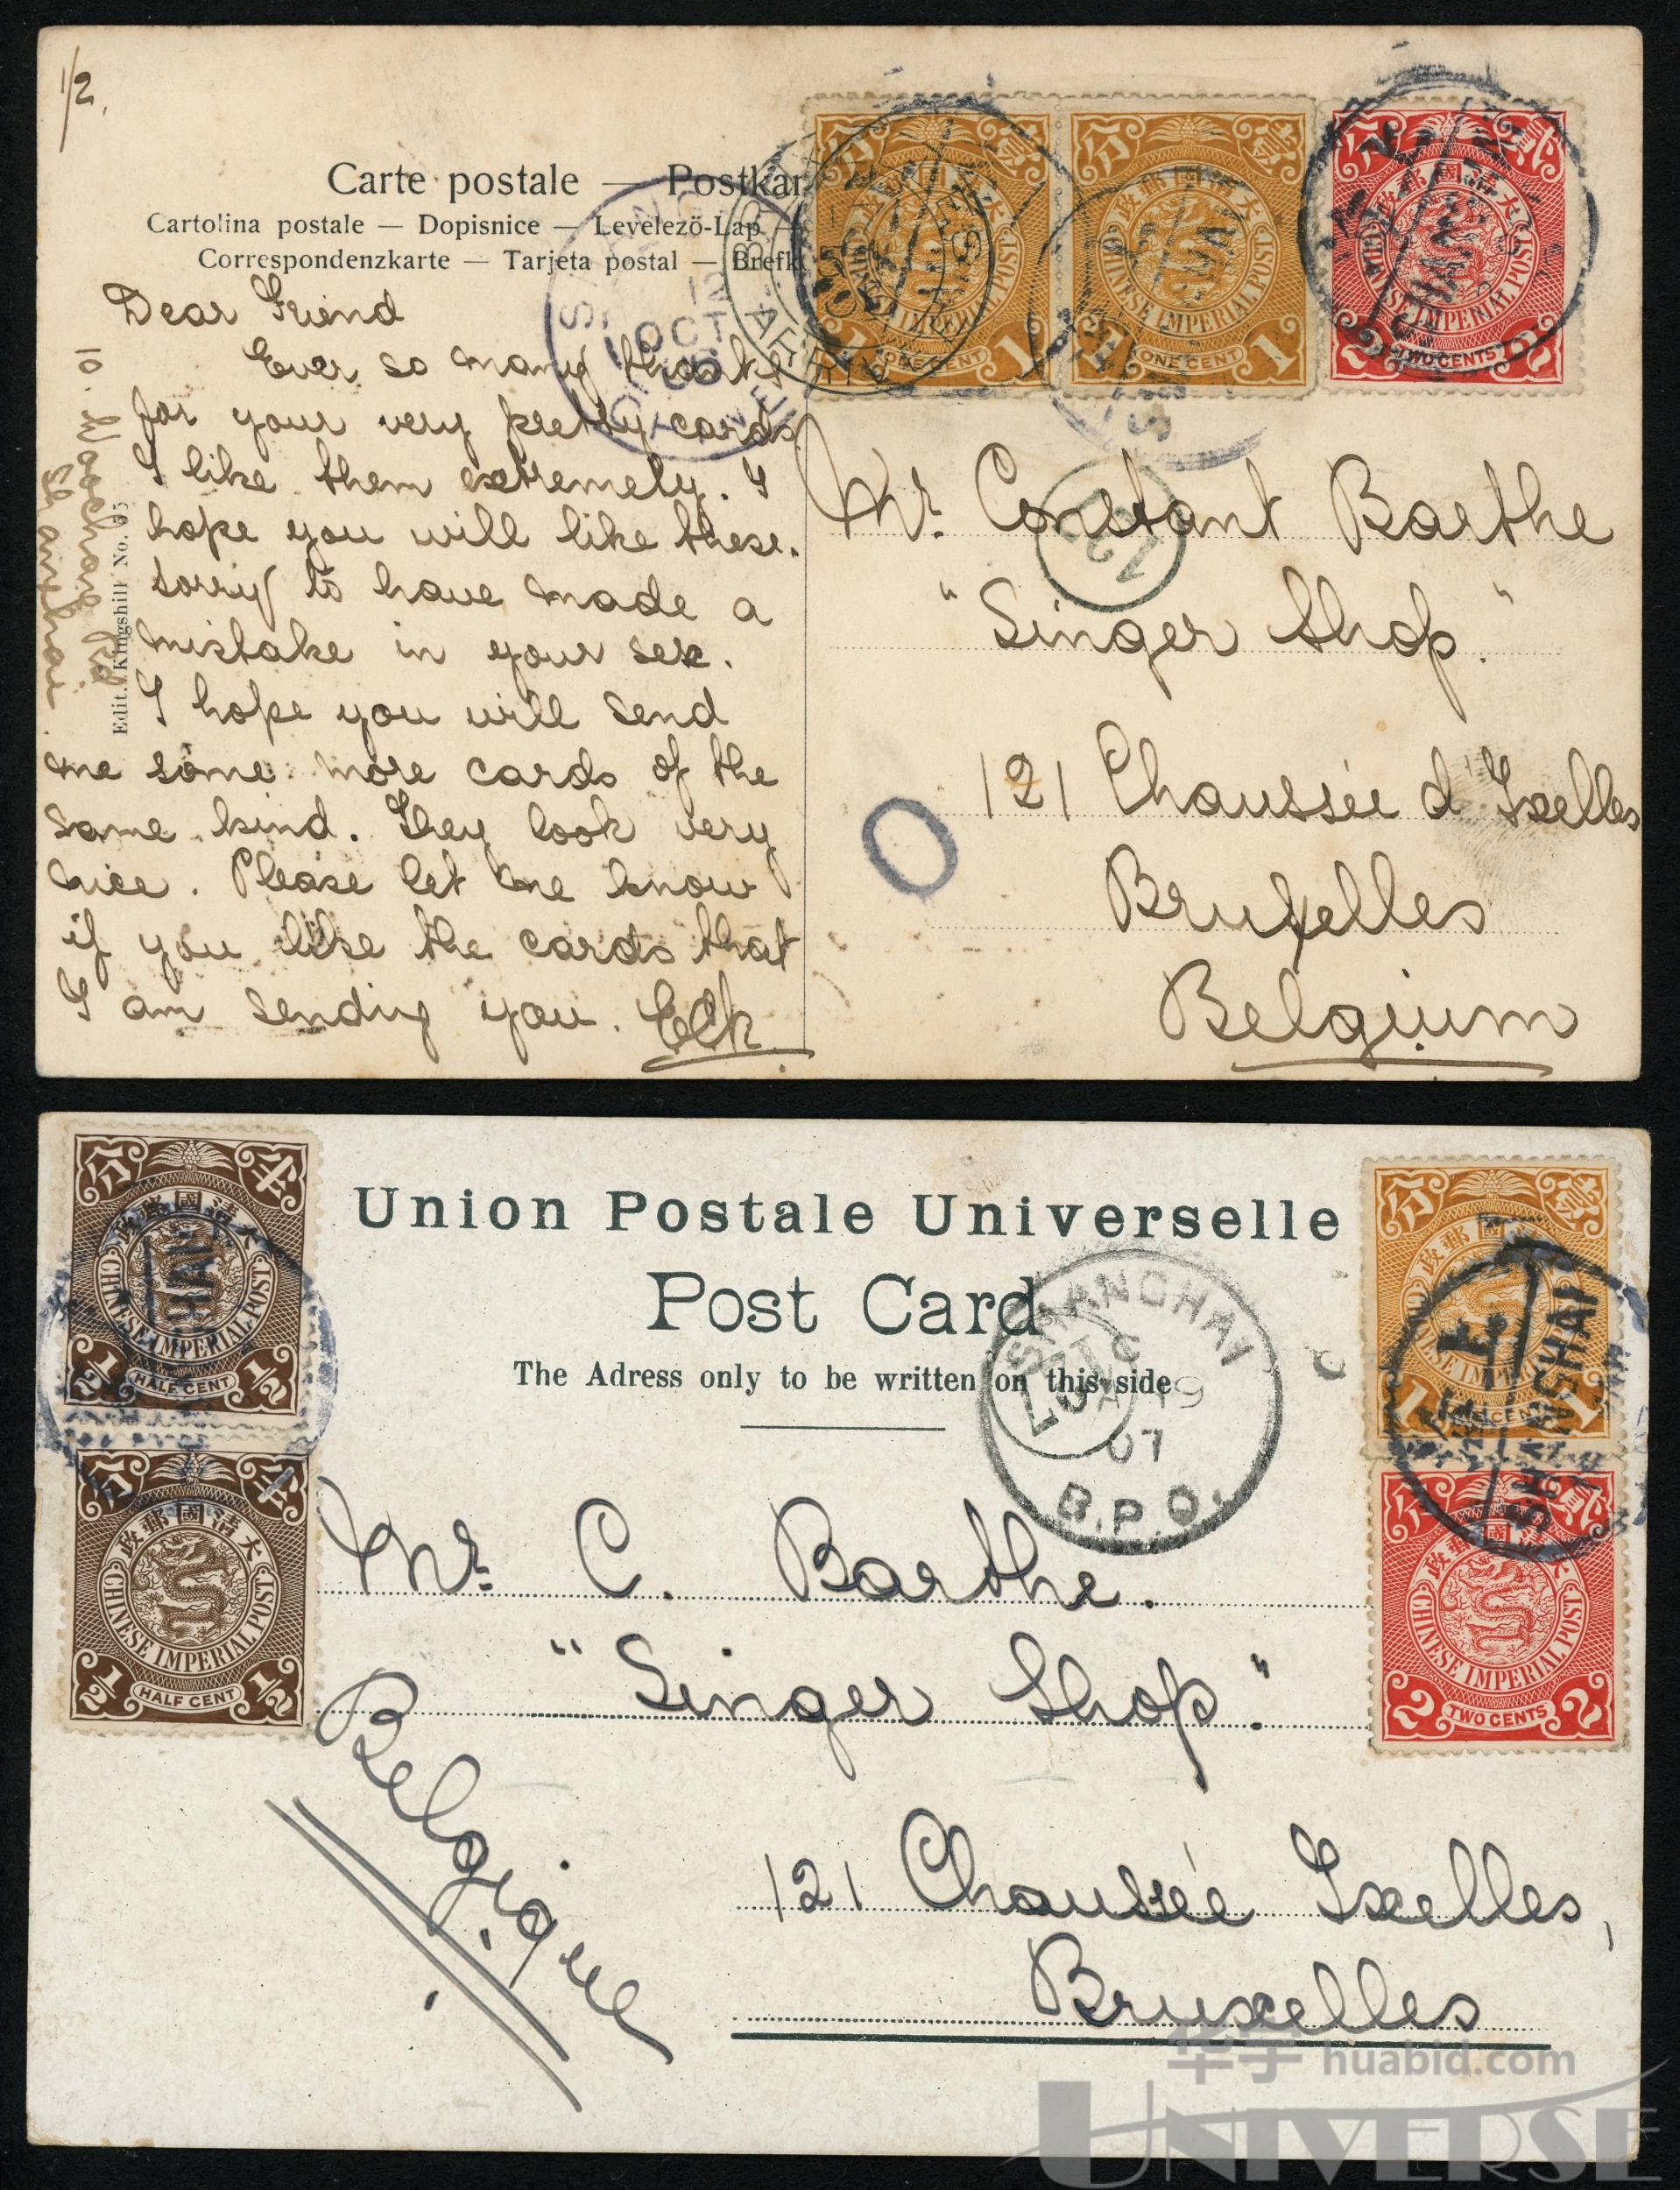 1/2.
Carte postale — Postkar
Cartolina postale — Dopisnice — Levelező-Lap —
Correspondenzkarte — Tarjeta postal — Brefk
Dear Friend
Ever so many thanks
for your very pretty cards
I like them extremely. I
hope you will like these.
sorry to have made a
mistake in your sex.
I hope you will send
me some more cards of the
same kind. They look very
nice. Please let me know
if you like the cards that
I am sending you.
Edit. Kingshill No.
Shanghai
OCT
CHINESE IMPERIAL POST
1 ONE CENT 1
CHINESE IMPERIAL POST
1 ONE CENT 1
CHINESE IMPERIAL POST
TWO CENTS 2
Mr. Constant Barthe
"Singer Shop."
121 Chaussée d'Ixelles
Bruxelles
Belgium
分 半
大清國郵政
CHINESE IMPERIAL POST
½ HALF CENT ½
分 半
大清國郵政
CHINESE IMPERIAL POST
½ HALF CENT ½
Union Postale Universelle
Post Card
The Adress only to be written on this side
SHANGHAI
07
B.P.O.
分 壹
CHINESE IMPERIAL POST
1 ONE CENT 1
SHANGHAI
CHINESE IMPERIAL POST
2 TWO CENTS 2
Mr. C. Barthe.
"Singer Shop."
Belgique
121 Chaussée Ixelles,
Bruxelles
华宇 huabid.com
UNIVERSE